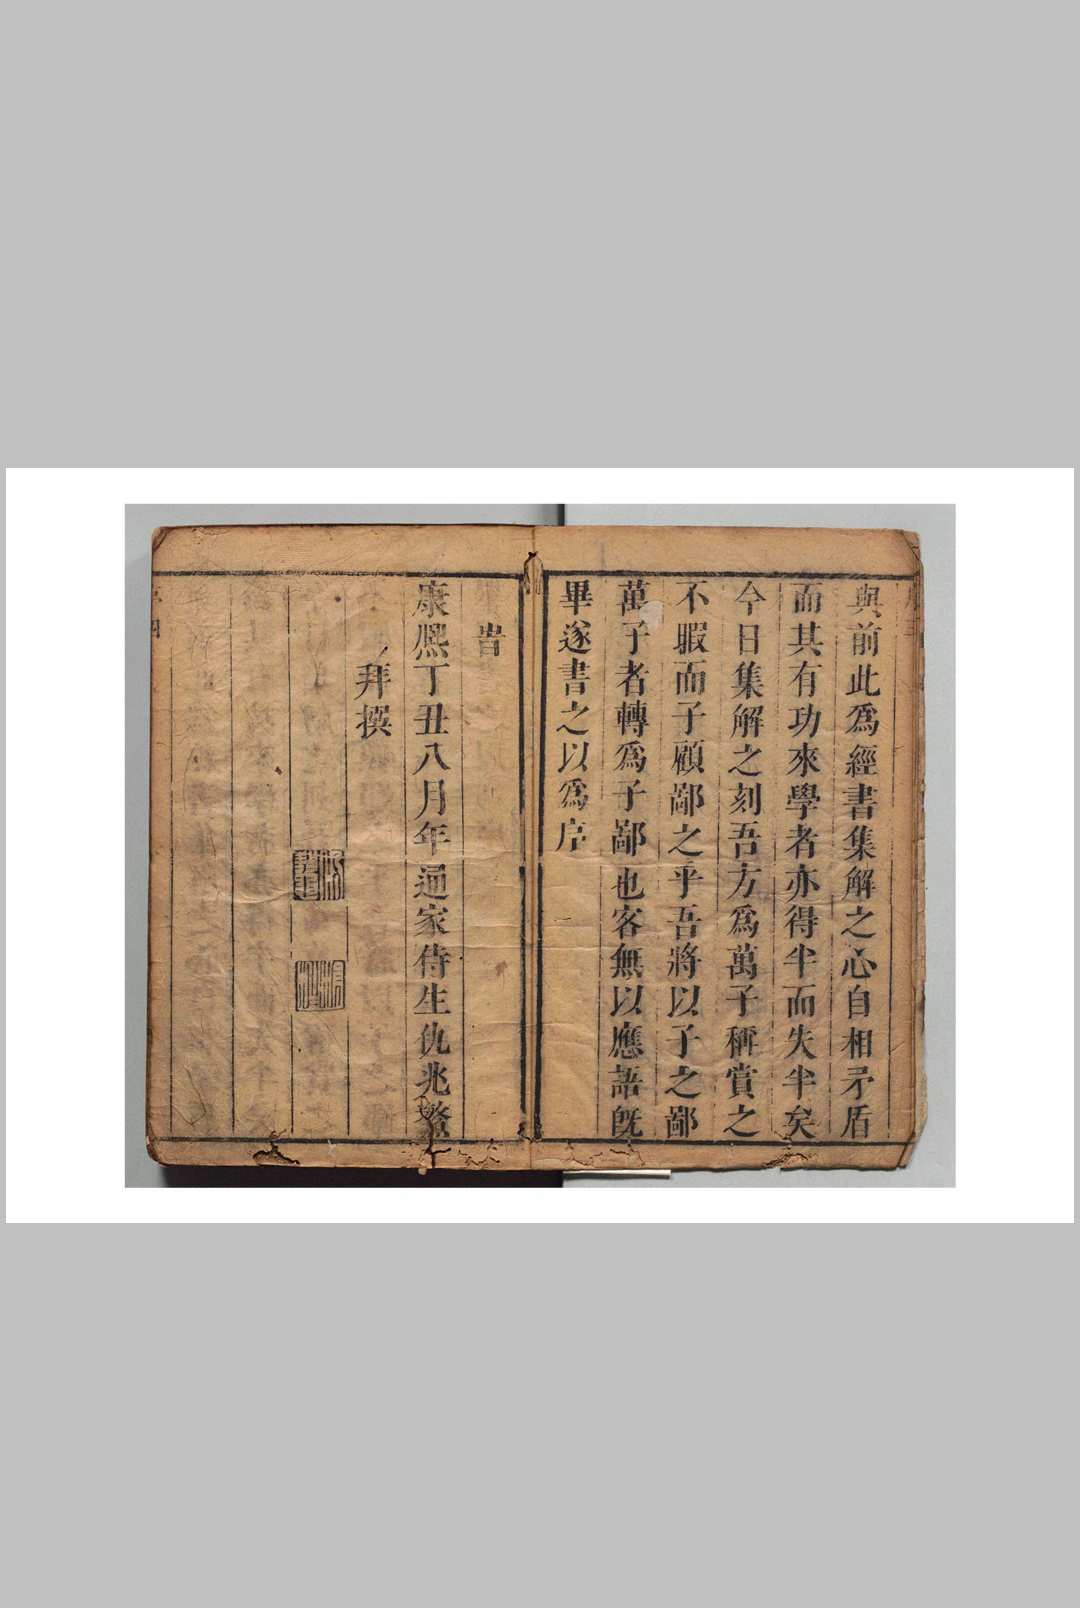 與前此爲經書集解之心自相矛盾
而其有功來學者亦得半而失半矣
今日集解之刻吾方爲萬子稱賞之
不暇而子顧鄙之乎吾將以子之鄙
萬子者轉爲子鄙也客無以應語旣
畢遂書之以爲序
旹
康熈丁丑八月年通家侍生仇兆鰲
拜撰